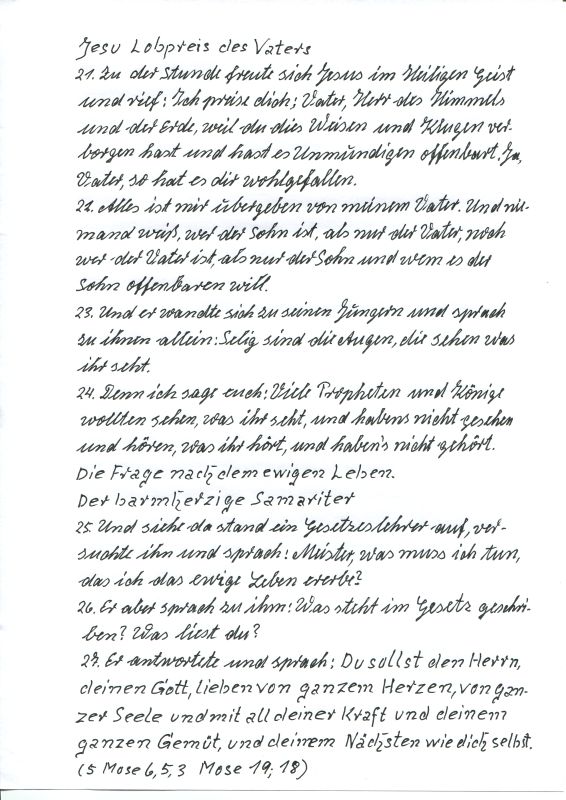 Jesu Lobpreis des Vaters
21. Zu der Stunde freute sich Jesus im Heiligen Geist
und rief: Ich preise dich; Vater, Herr des Himmels
und der Erde, weil du dies Weisen und Klugen ver-
borgen hast und hast es Unmündigen offenbart. Ja,
Vater, so hat es dir wohlgefallen.
22. Alles ist mir übergeben von meinem Vater. Und nie-
mand weiß, wer der Sohn ist, als nur der Vater, noch
wer der Vater ist, als nur der Sohn und wem es der
Sohn offenbaren will.
23. Und er wandte sich zu seinen Jüngern und sprach
zu ihnen allein: Selig sind die Augen, die sehen was
ihr seht.
24. Denn ich sage euch: Viele Propheten und Könige
wollten sehen, was ihr seht, und habens nicht gesehen
und hören, was ihr hört, und haben's nicht gehört.
Die Frage nach dem ewigen Leben.
Der barmherzige Samariter
25. Und siehe da stand ein Gesetzeslehrer auf, ver-
suchte ihn und sprach: Meister, was muss ich tun,
das ich das ewige Leben ererbe?
26. Er aber sprach zu ihm: Was steht im Gesetz geschrie-
ben? Was liest du?
27. Er antwortete und sprach: Du sollst den Herrn,
deinen Gott, lieben von ganzem Herzen, von gan-
zer Seele und mit all deiner Kraft und deinem
ganzen Gemüt, und deinem Nächsten wie dich selbst.
(5 Mose 6,5,3 Mose 19; 18)